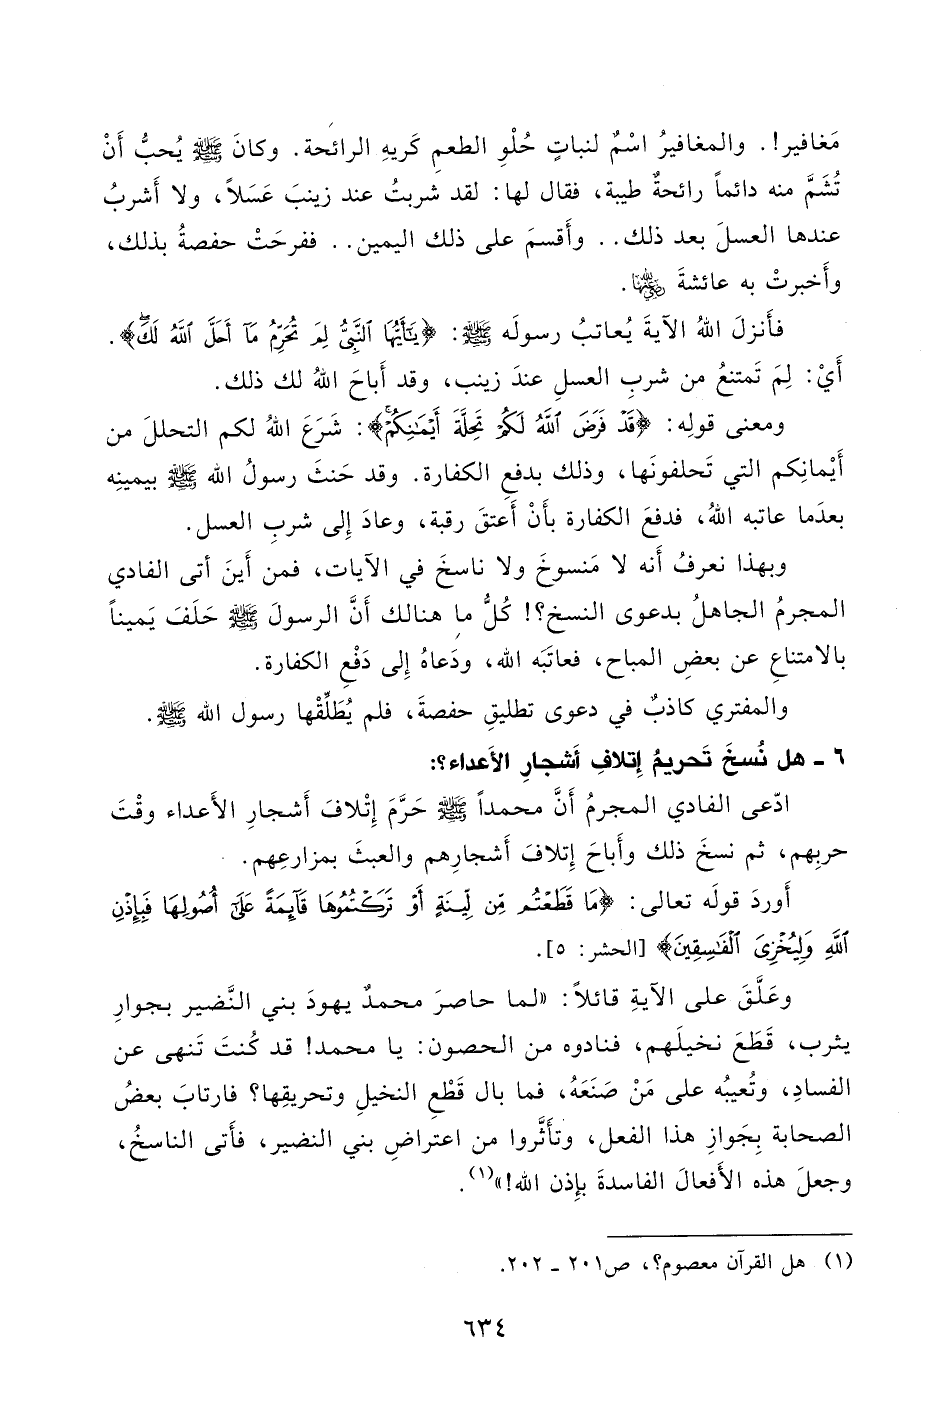 مَغافير!. والمغافيرُ اسْمٌ لنباتٍ حُلْوِ الطعمِ كَريهِ الرائحة. وكانَ ﷺ يُحبُّ أَنْ
تُشَمَّ منه دائماً رائحةٌ طيبة، فقال لها: لقد شربتُ عند زينبَ عَسَلاً، ولا أَشربُ
عندها العسلَ بعد ذلك.. وأَقسمَ على ذلك اليمين.. ففرحَتْ حفصةُ بذلك،
وأَخبرتْ به عائشةَ رضي الله عنها.
فأَنزلَ اللهُ الآيةَ يُعاتبُ رسولَه ﷺ: ﴿يَٰٓأَيُّهَا ٱلنَّبِيُّ لِمَ تُحَرِّمُ مَآ أَحَلَّ ٱللَّهُ لَكَۖ﴾.
أَيْ: لِمَ تَمتنعُ من شربِ العسلِ عندَ زينب، وقد أَباحَ اللهُ لك ذلك.
ومعنى قولِه: ﴿قَدْ فَرَضَ ٱللَّهُ لَكُمْ تَحِلَّةَ أَيْمَٰنِكُمْۚ﴾: شَرَعَ اللهُ لكم التحللَ من
أَيْمانِكم التي تَحلفونَها، وذلك بدفعِ الكفارة. وقد حَنثَ رسولُ الله ﷺ بيمينِه
بعدَما عاتبه اللهُ، فدفعَ الكفارة بأَنْ أَعتقَ رقبة، وعادَ إِلى شربِ العسل.
وبهذا نعرفُ أنه لا مَنسوخَ ولا ناسخَ في الآيات، فمن أَينَ أتى الفادي
المجرمُ الجاهلُ بدعوى النسخ؟! كُلُّ ما هنالك أَنَّ الرسولَ ﷺ حَلَفَ يَميناً
بالامتناعِ عن بعضِ المباح، فعاتَبَه الله، ودَعاهُ إِلى دَفْعِ الكفارة.
والمفتري كاذبٌ في دعوى تطليقِ حفصةَ، فلم يُطَلِّقْها رسول الله ﷺ.
٦ - هل نُسخَ تَحريمُ إِتلافِ أشجارِ الأعداء؟:
ادّعى الفادي المجرمُ أَنَّ محمداً ﷺ حَرَّمَ إِتْلافَ أَشجارِ الأعداء وقْتَ
حربِهم، ثم نسخَ ذلك وأَباحَ إِتلافَ أَشجارِهم والعبثَ بمزارعِهم.
أَوردَ قولَه تعالى: ﴿مَا قَطَعْتُم مِّن لِّينَةٍ أَوْ تَرَكْتُمُوهَا قَآئِمَةً عَلَىٰٓ أُصُولِهَا فَبِإِذْنِ
ٱللَّهِ وَلِيُخْزِىَ ٱلْفَٰسِقِينَ﴾ [الحشر: ٥].
وعَلَّقَ على الآيةِ قائلاً: «لما حاصرَ محمدٌ يهودَ بني النَّضير بجوارِ
يثرب، قَطَعَ نخيلَهم، فنادوه من الحصون: يا محمد! قد كُنتَ تَنهى عن
الفسادِ، وتُعيبُه على مَنْ صَنَعَهُ، فما بال قَطْعِ النخيل وتحريقِها؟ فارتابَ بعضُ
الصحابة بِجَوازِ هذا الفعل، وتأَثَّروا من اعتراضِ بني النضير، فأَتى الناسخُ،
وجعلَ هذه الأَفعالَ الفاسدةَ بإِذن الله!»(١).
(١) هل القرآن معصوم؟، ص٢٠١ - ٢٠٢.
٦٣٤